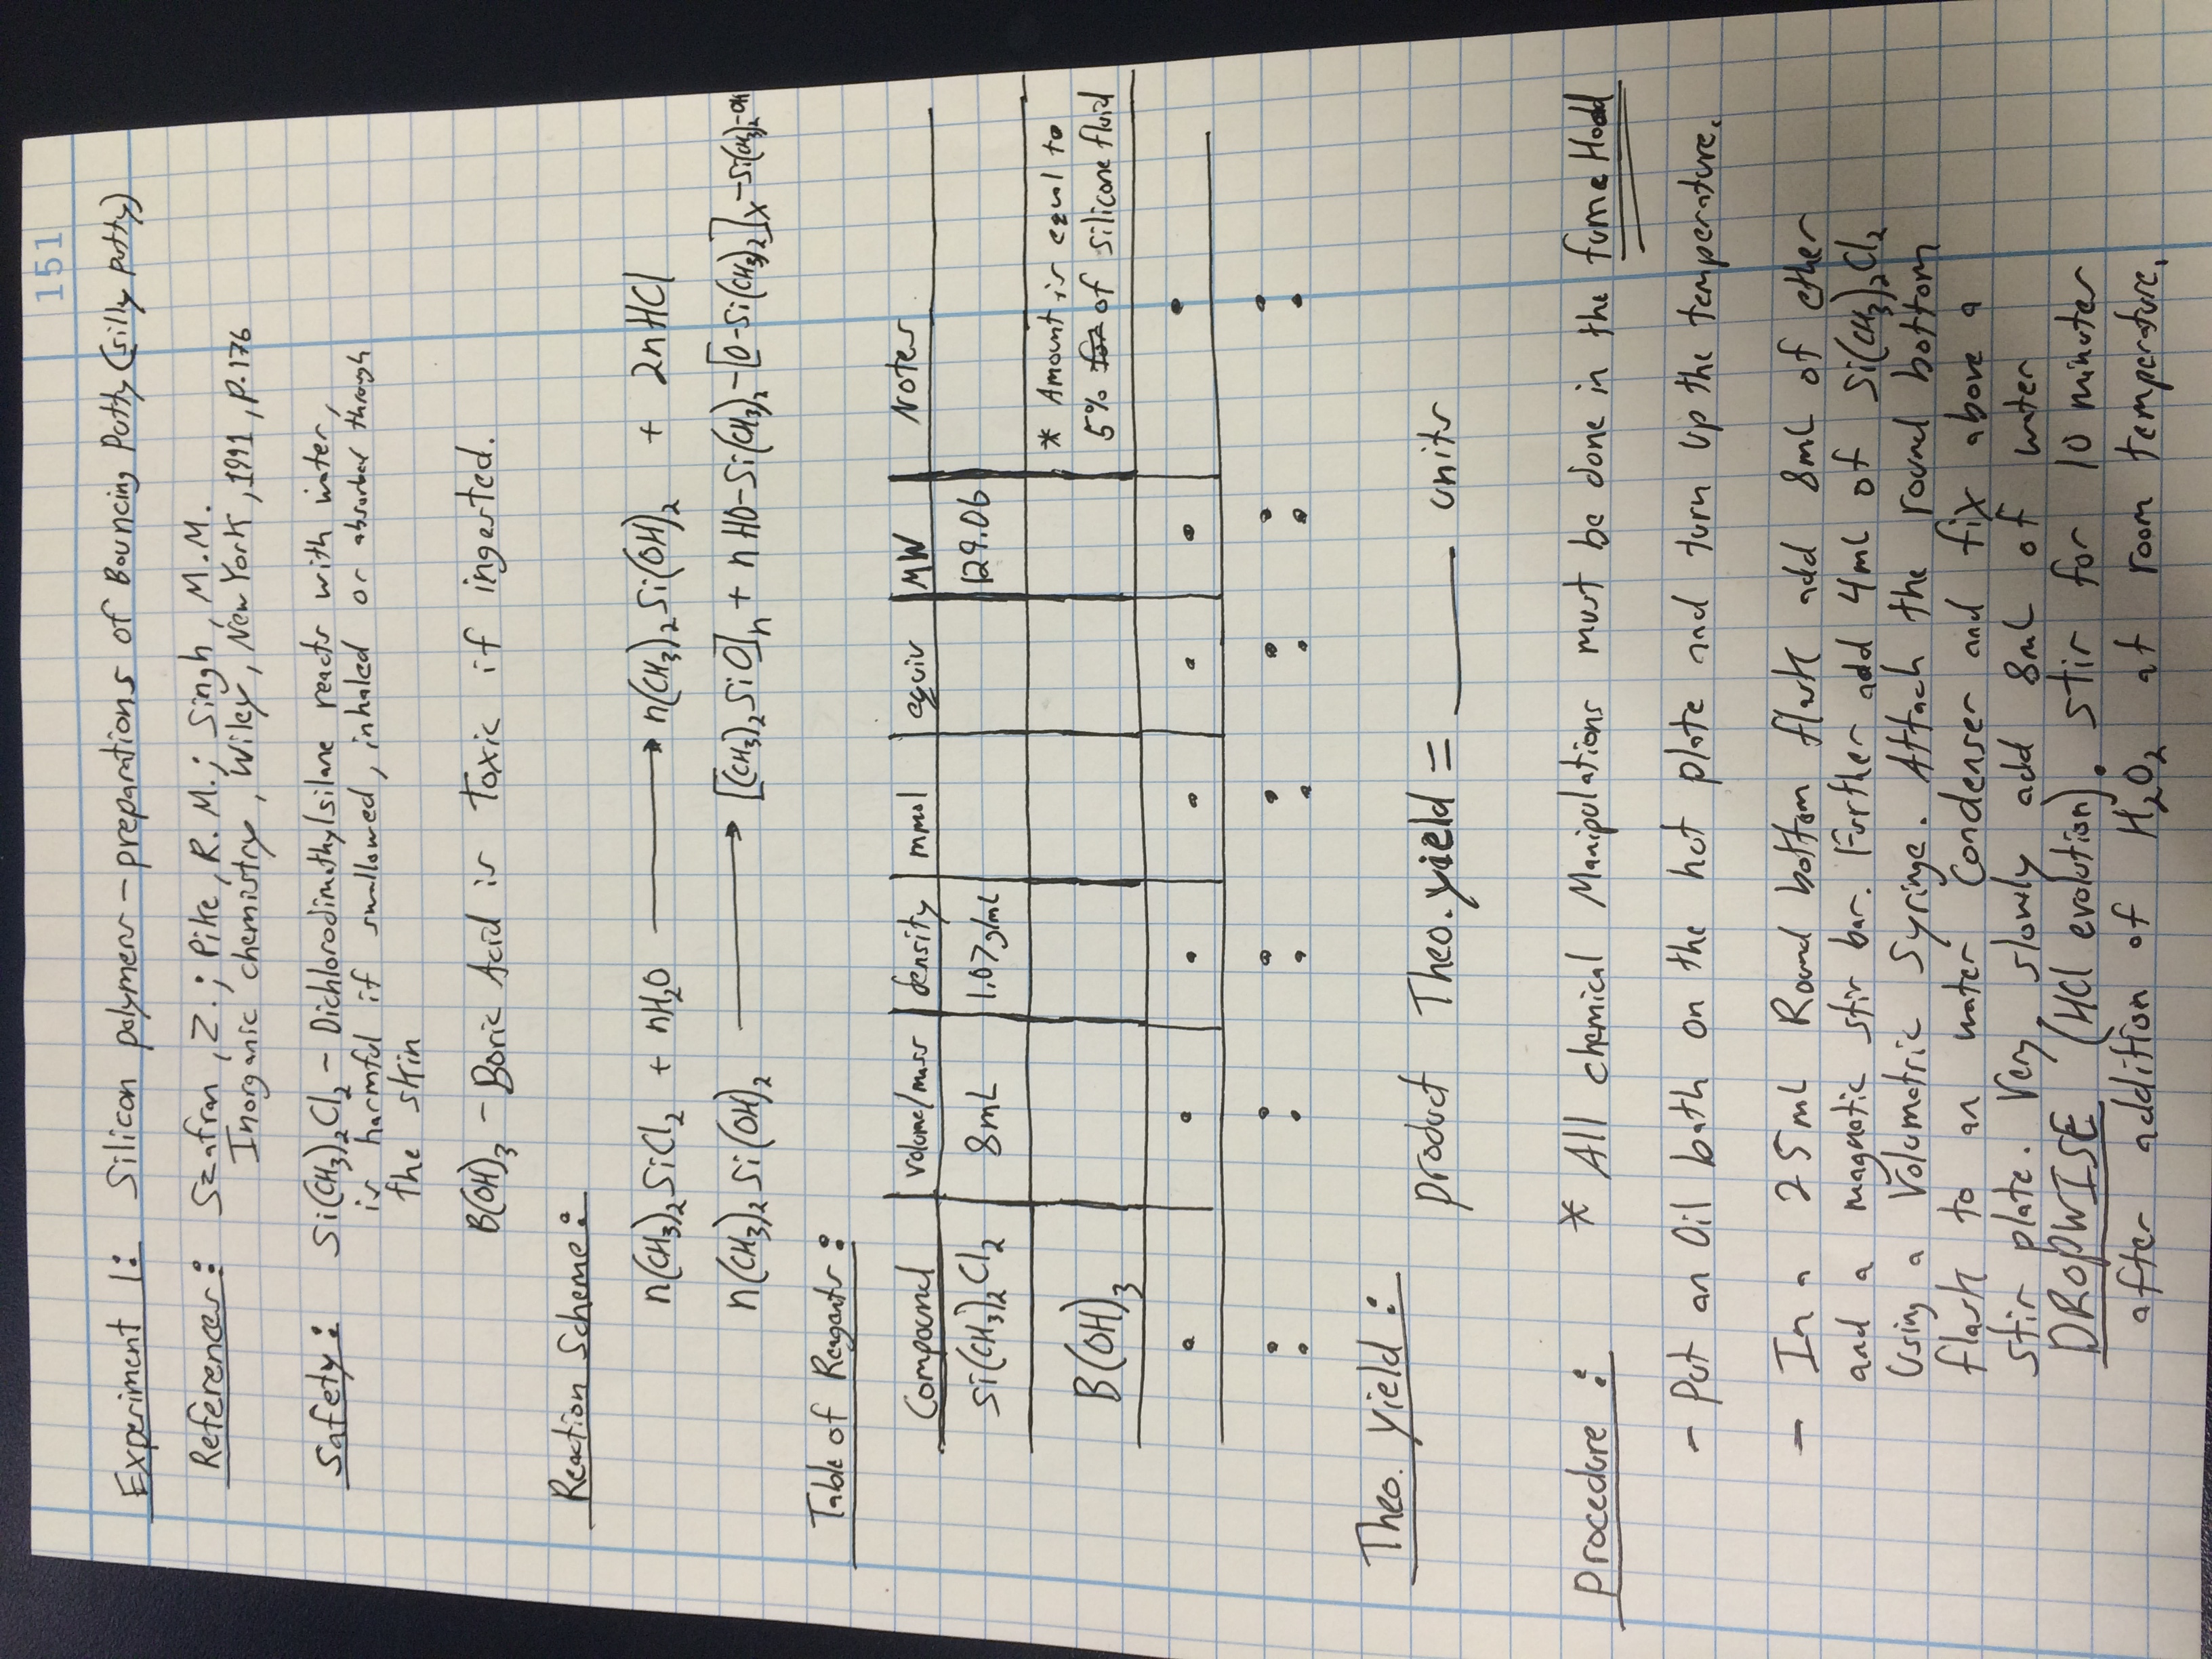 151
Experiment 1: Silicon polymers - preparations of Bouncing Putty (silly putty)
References: Szafran, Z.; Pike, R.M.; Singh, M.M.
Inorganic chemistry, Wiley, New York, 1991, p.176
Safety: Si(CH3)2Cl2 - Dichlorodimethylsilane reacts with water,
is harmful if swallowed, inhaled or absorbed through
the skin
B(OH)3 - Boric Acid is Toxic if ingested.
Reaction Scheme:
n(CH3)2SiCl2 + nH2O ⟶ n(CH3)2Si(OH)2 + 2nHCl
n(CH3)2Si(OH)2 ⟶ [(CH3)2SiO]n + n HO-Si(CH3)2-[O-Si(CH3)2]x-Si(CH3)2-OH
Table of Reagents:
Compound volume/mass density mmol equiv MW Notes
Si(CH3)2Cl2 8mL 1.07g/mL 129.06
B(OH)3 * Amount is equal to
5% of silicone fluid
Theo. Yield: product Theo. yield = ____ units
Procedure: * All chemical Manipulations must be done in the fume Hood
- Put an Oil bath on the hot plate and turn up the temperature.
- In a 25mL Round bottom flask add 8mL of ether
and a magnetic stir bar. Further add 4mL of Si(CH3)2Cl2
Using a Volumetric Syringe. Attach the round bottom
flask to an water Condenser and fix above a
stir plate. Very slowly add 8mL of water
DROPWISE (HCl evolution). Stir for 10 minutes
after addition of H2O2 at room temperature.